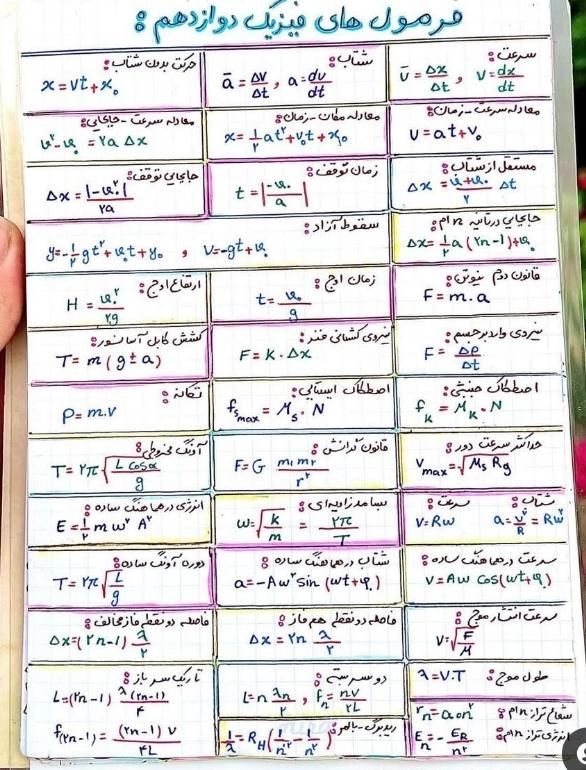 فرمول های فیزیک دوازدهم :
سرعت : v̄ = Δx/Δt , v = dx/dt
شتاب : ā = Δv/Δt , a = dv/dt
حرکت بدون شتاب : x = vt + x₀
معادله سرعت - زمان : v = at + v₀
معادله مکان - زمان : x = ½ at² + v₀t + x₀
معادله سرعت - جابجایی : v² - v₀² = ۲a Δx
مستقل از شتاب : Δx = (v + v₀)/۲ Δt
زمان توقف : t = |-v₀/a|
جابجایی توقف : Δx = |-v₀²|/۲a
جابجایی در ثانیه n ام : Δx = ½ a (۲n-1) + v₀
سقوط آزاد : y = -½ gt² + v₀t + y₀ , v = -gt + v₀
قانون دوم نیوتن : F = m.a
زمان اوج : t = v₀/g
ارتفاع اوج : H = v₀²/۲g
نیروی وارد بر جسم : F = Δp/Δt
نیروی کشسانی فنر : F = k.Δx
کشش کابل آسانسور : T = m(g ± a)
اصطکاک جنبشی : fₖ = μₖ.N
اصطکاک ایستایی : fₛmax = μₛ.N
تکانه : P = m.v
حداکثر سرعت دور : Vmax = √(μₛ Rg)
قانون گرانش : F = G m₁m₂/r²
آونگ مخروطی : T = ۲π √(L cosα/g)
شتاب : a = v²/R = Rω² سرعت : v = Rω
بسامد زاویه‌ای : ω = √(k/m) = ۲π/T
انرژی در هماهنگ ساده : E = ½ m ω² A²
سرعت در هماهنگ ساده : v = Aω cos(ωt+φ₀)
شتاب در هماهنگ ساده : a = -Aω² sin(ωt+φ₀)
دوره آونگ ساده : T = ۲π √(L/g)
سرعت انتشار موج : v = √(F/μ)
فاصله دو نقطه هم فاز : Δx = ۲n λ/۲
فاصله دو نقطه فاز مخالف : Δx = (۲n-1) λ/۲
طول موج : λ = v.T
دو سر بسته : L = n λₙ/۲ , fₙ = nv/۲L
تار یک سر باز : L = (۲n-1) λ(۲n-1)/۴
f(۲n-1) = (۲n-1) v/۴L
شعاع تراز n ام : rₙ = a₀n²
انرژی تراز n ام : Eₙ = -E_R/n²
ریدبرگ - بالمر : 1/λ = R_H (1/n'² - 1/n²)